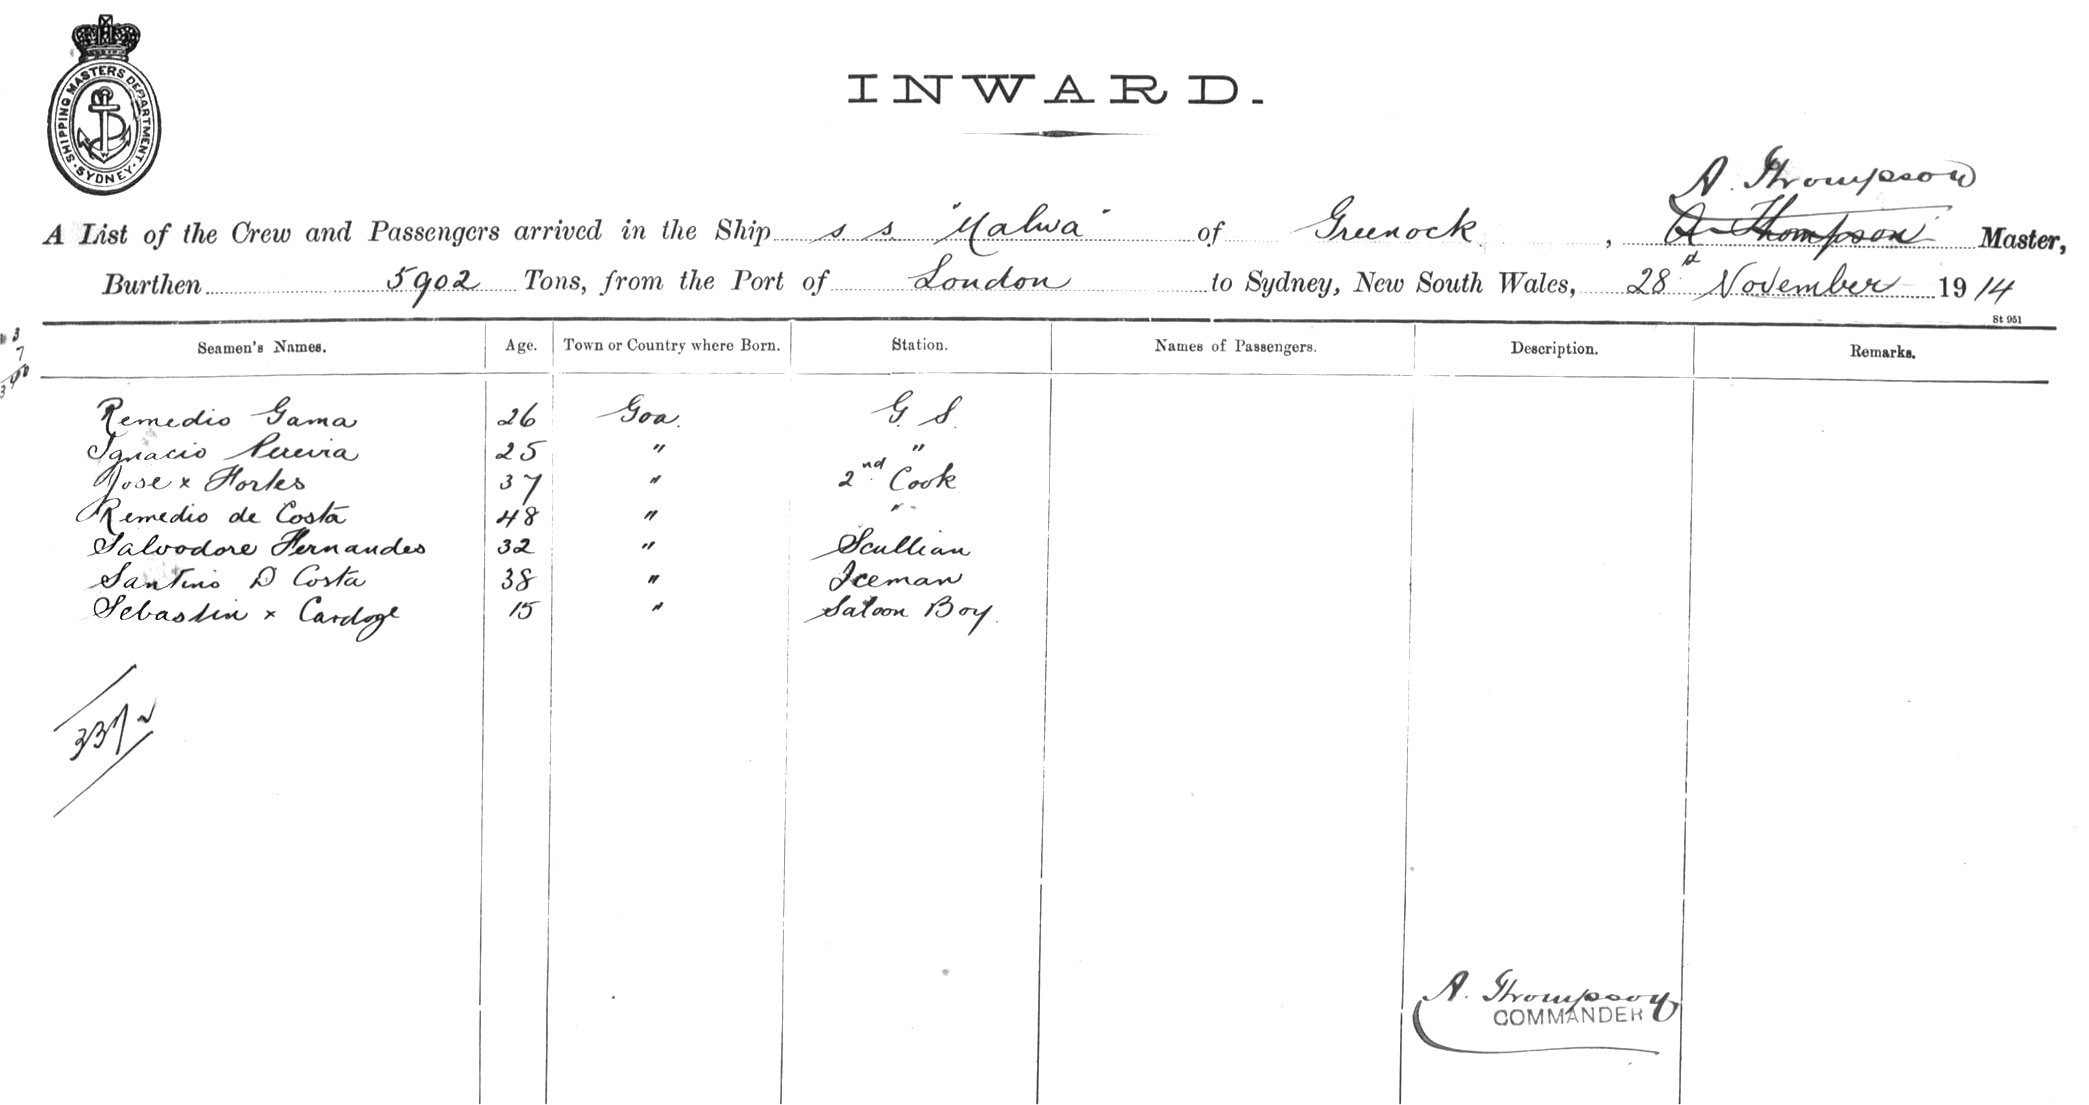 SHIPPING MASTERS DEPARTMENT · SYDNEY ·
INWARD.
A. Thompson
A List of the Crew and Passengers arrived in the Ship s. s. "Malwa" of Greenock, A Thompson Master,
Burthen 5902 Tons, from the Port of London to Sydney, New South Wales, 28th November 1914
St 951
3
7
Seamen's Names. Age. Town or Country where Born. Station. Names of Passengers. Description. Remarks.
Remedio Gama 26 Goa. G. S.
Ignacio Pereira 25 " "
Jose x Fortes 37 " 2nd Cook
Remedio de Costa 48 " "
Salvodore Fernandes 32 " Scullian
Santino D Costa 38 " Iceman
Sebastin x Cardoge 15 " Saloon Boy.
337
A. Thompson
COMMANDER